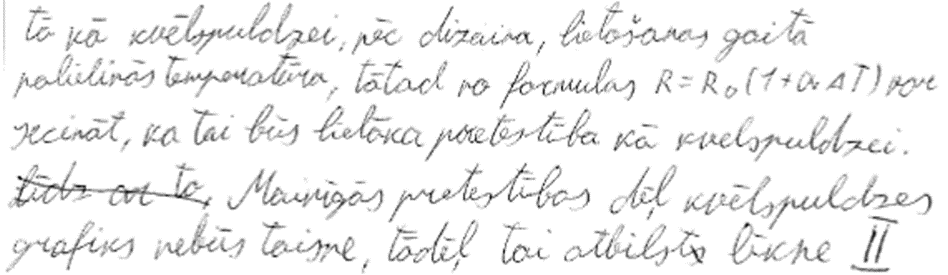 tā kā kvēlspuldzei, pēc dizaina, lietošanas gaitā
palielinās temperatūra, tātad no formulas R = R₀(1+αΔT) var
secināt, ka tai būs lielāka pretestība kā kvēlspuldzei.
līdz ar to, Mainīgās pretestības dēļ kvēlspuldzes
grafiks nebūs taisne, tādēļ tai atbilst līkne II